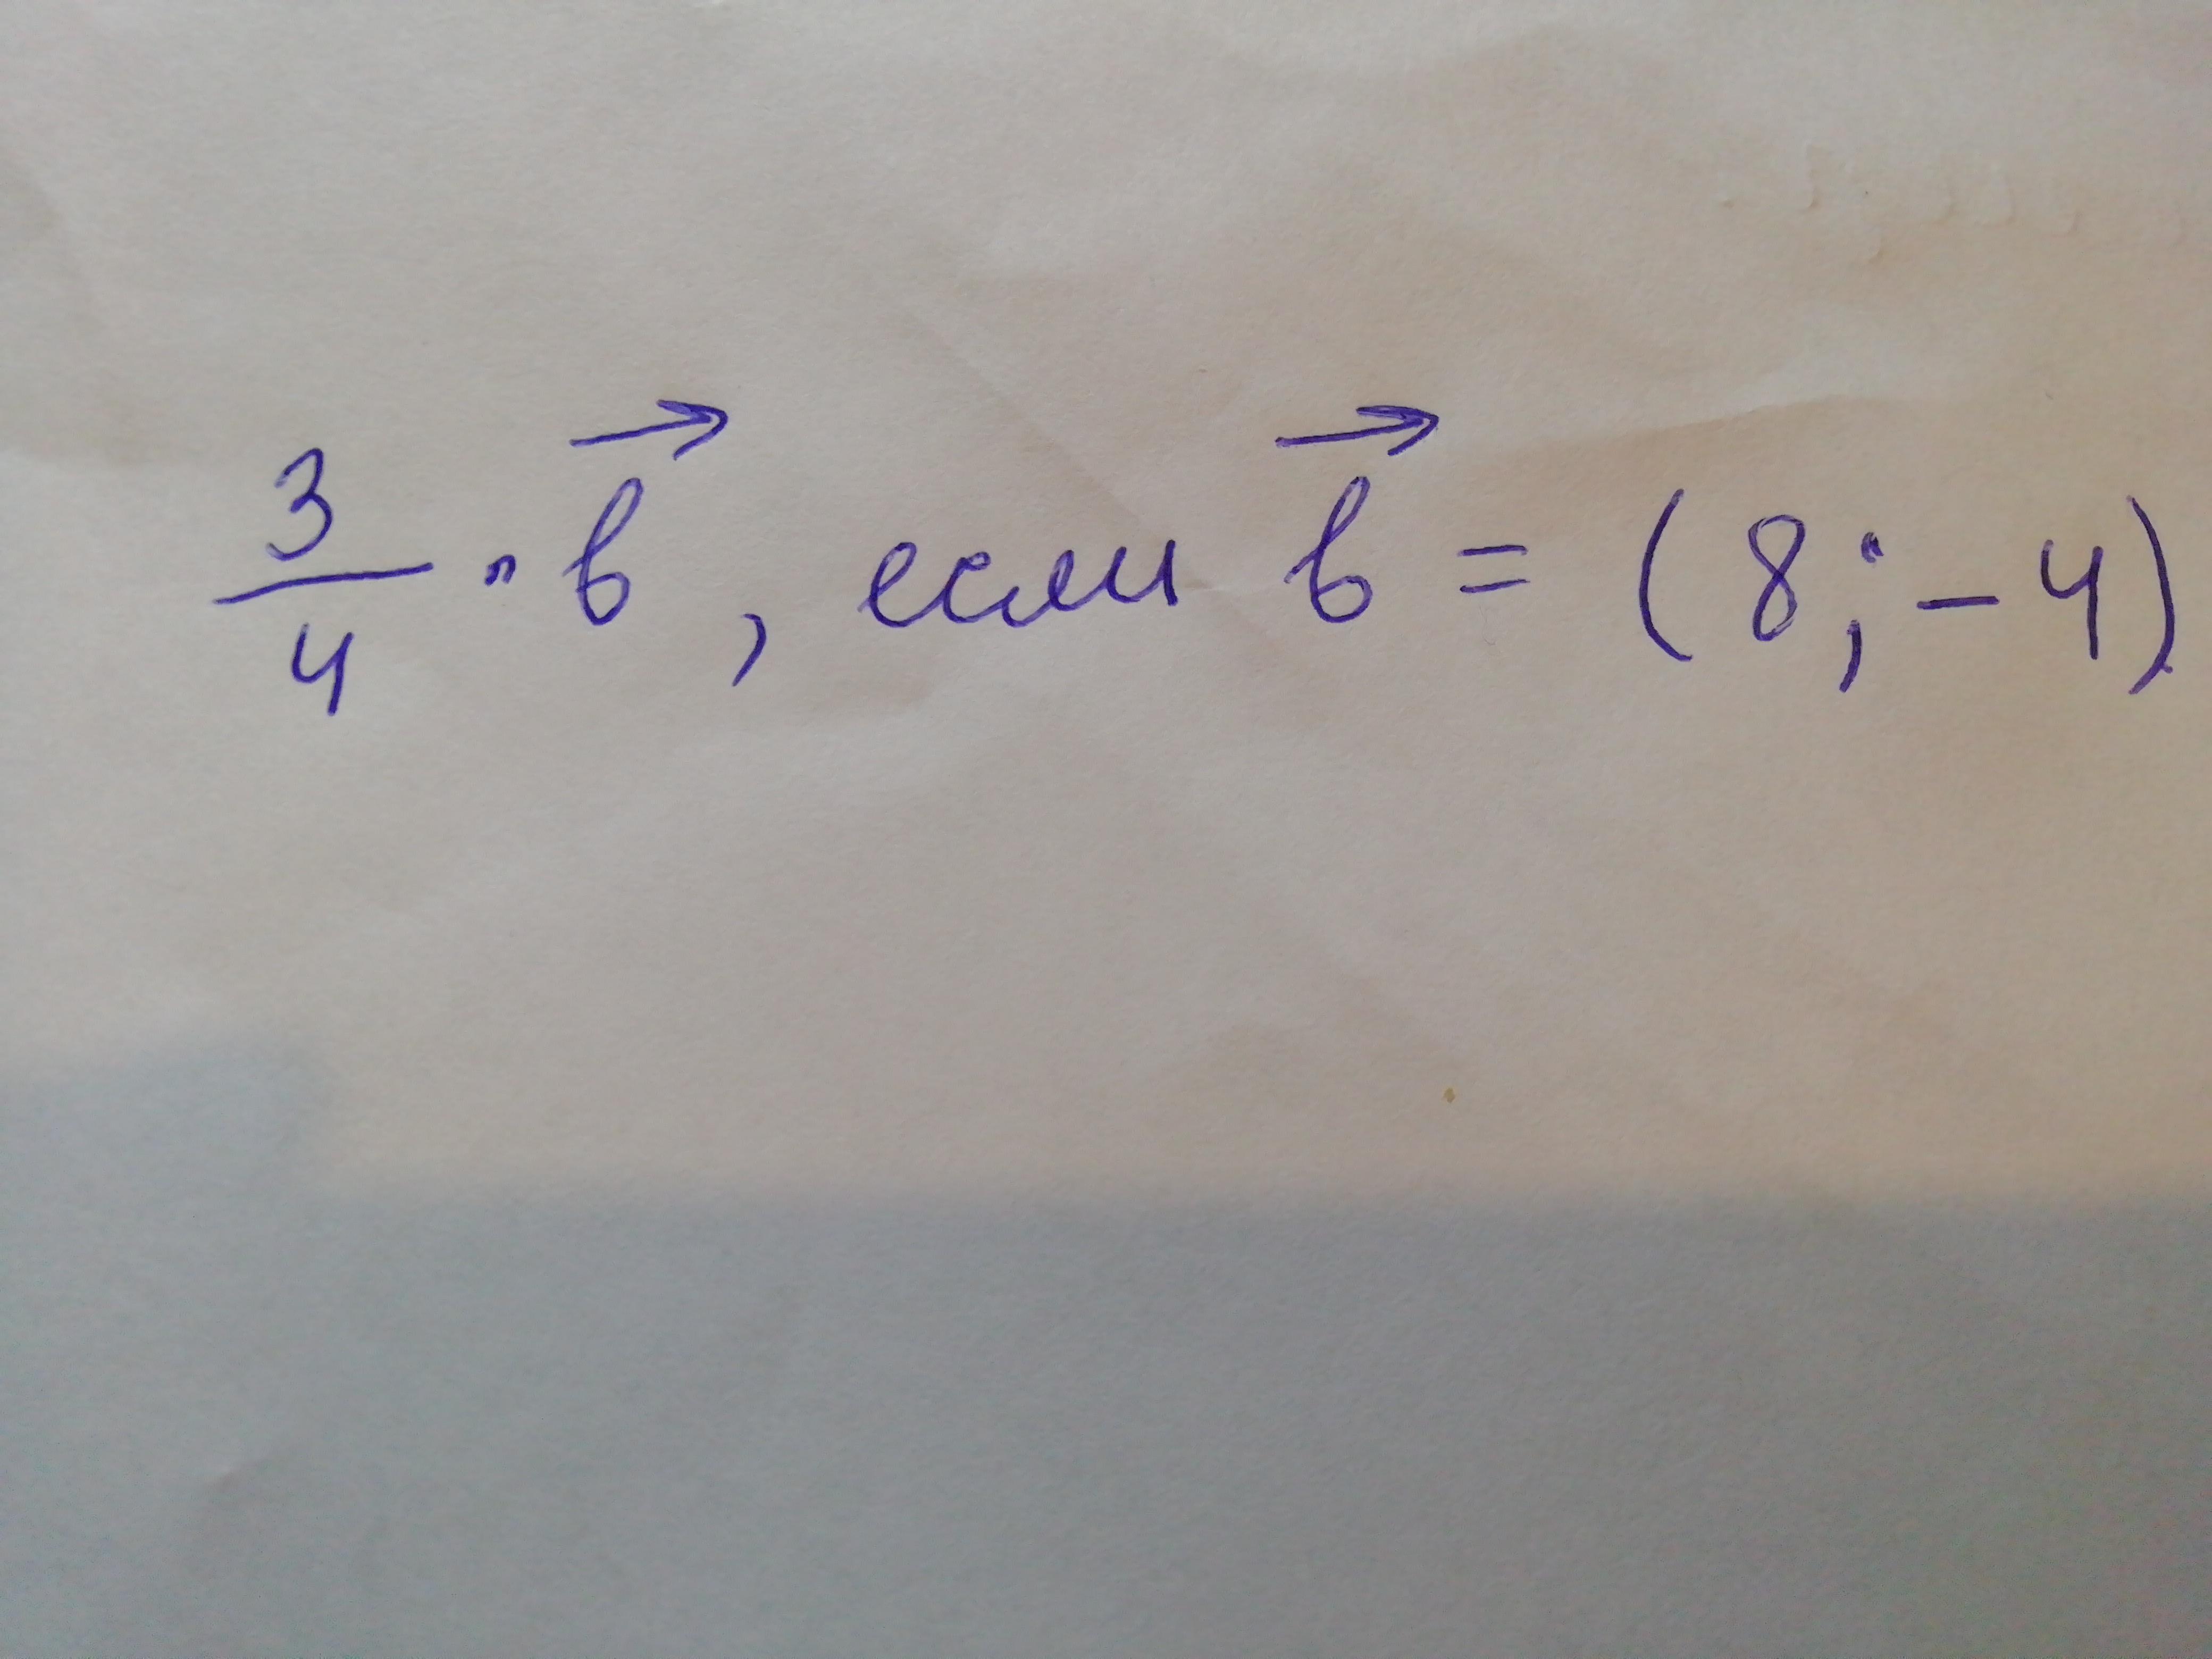 3/4 · b⃗, если b⃗ = (8; -4)